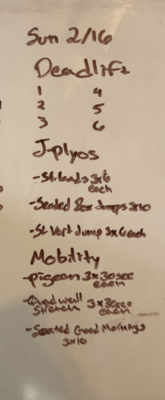 Sun 2/16
Deadlift
1 4
2 5
3 6
J-plyos
-SL Lands 3x6
each
-Seated Box Jumps 3x10
-SL Vert Jump 3x6 each
Mobility
-pigeon 3x30sec
each
-Quad wall 3x30sec
Stretch each
-Seated Good Mornings
3x10